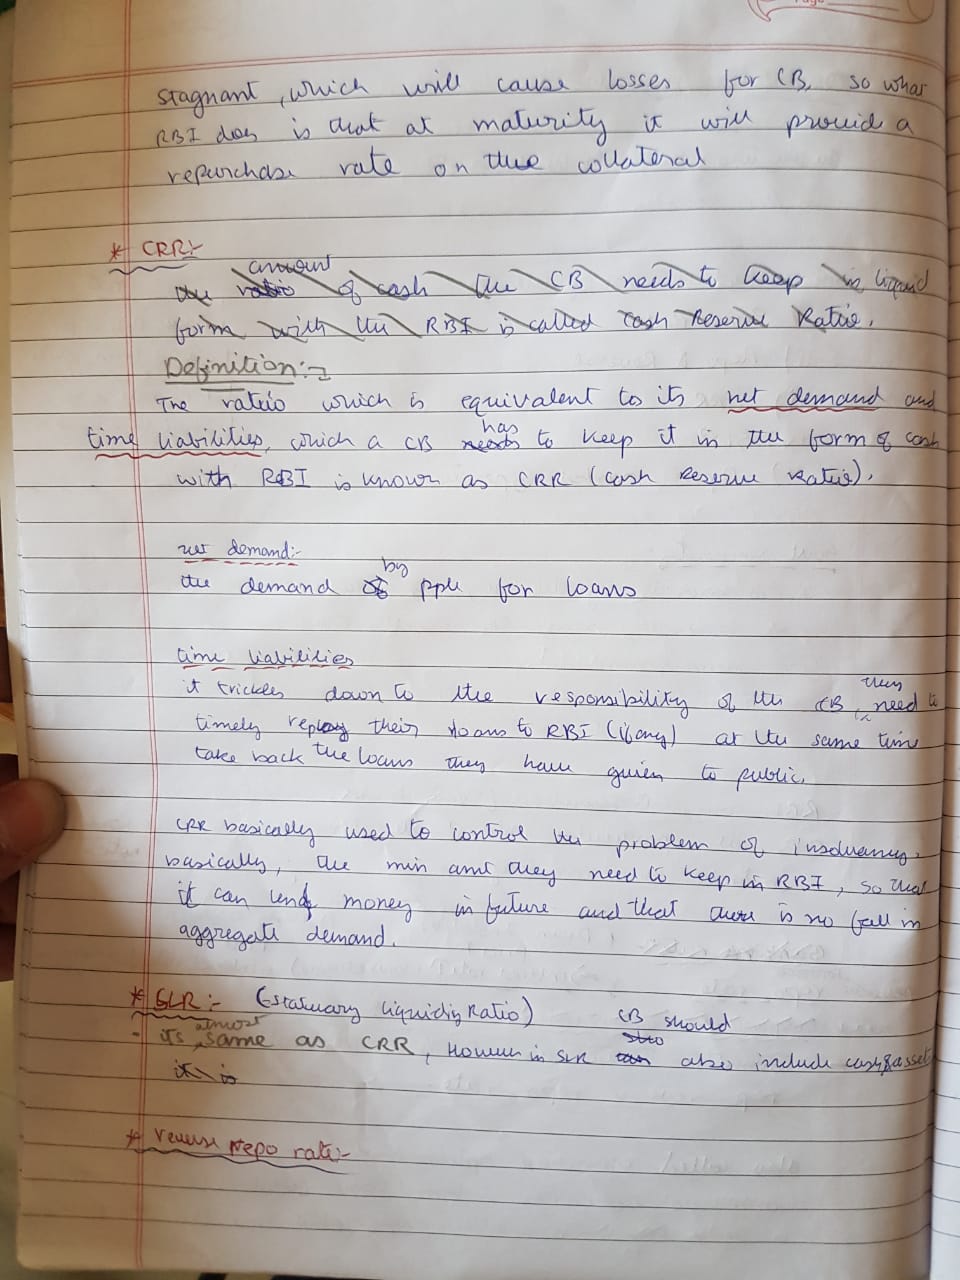 stagnant, which will cause losses for CB, so what
RBI does is that at maturity it will provid a
repurchase rate on thie collateral
* CRR:-
amount
the ratio of cash the CB needs to keep in liquid
form with the RBI is called cash Reserve Ratio.
Definition:-
The ratio which is equivalent to its net demand and
has
time liabilities, which a CB needs to keep it in the form of cash
with RBI is known as CRR (cash Reserve Ratio).
net demand:-
by
the demand of ppl for loans
time liabilities
they
it trickles down to the responsibility of the CB, need to
timely repay their loans to RBI (if any) at the same time
take back the loans they have given to public.
CRR basically used to control the problem of insolvency.
basically, the min amt they need to keep in RBI, so that
it can lend money in future and that there is no fall in
aggregate demand.
* SLR:- (Statuary liquidity Ratio)
almost CB should
- its same as CRR, However in SLR also include cash & asset
it is
* reverse repo rate:-